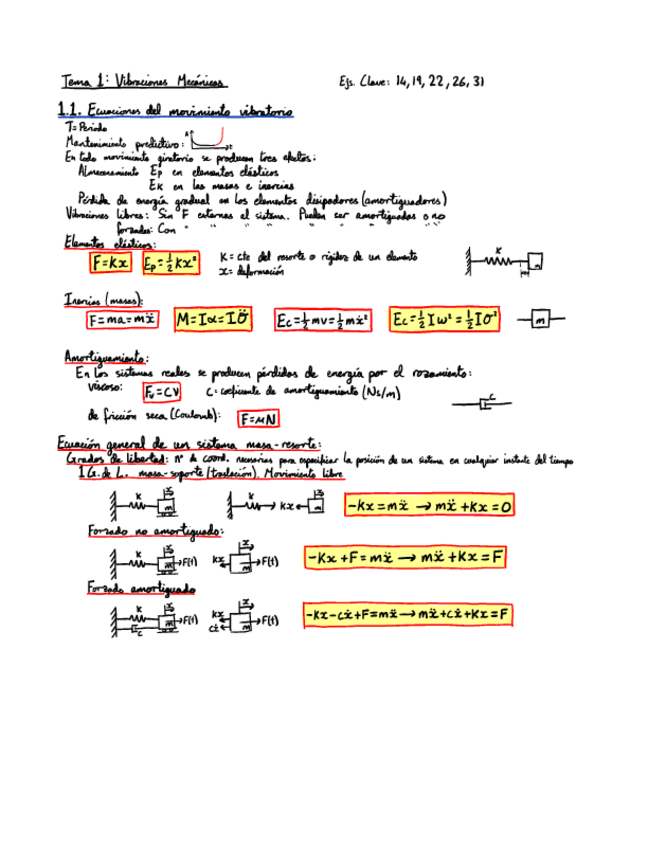 Tema 1: Vibraciones Mecánicas
Ejs. Clave: 14, 19, 22, 26, 31
1.1. Ecuaciones del movimiento vibratorio
T=Periodo
Mantenimiento predictivo:
t
En todo movimiento giratorio se producen tres efectos:
Almacenamiento Ep en elementos elásticos
Ek en las masas e inercias
Pérdida de energía gradual en los elementos disipadores (amortiguadores)
Vibraciones libres: Sin F externas al sistema. Pueden ser amortiguadas o no
forzadas: Con " " " " " " " "
Elementos elásticos:
F=Kx
Ep=½Kx²
K = cte del resorte o rigidez de un elemento
x = deformación
K
m
Inercias (masas):
F=ma=mẍ
M=Iα=Iθ̈
Ec=½mv=½mẋ²
Ec=½Iω²=½Iθ̇²
m
Amortiguamiento:
En los sistemas reales se producen pérdidas de energía por el rozamiento:
viscoso:
Fv=CV
C=coeficiente de amortiguamiento (Ns/m)
c
de fricción seca (Coulomb):
F=μN
Ecuación general de un sistema masa-resorte:
Grados de libertad: nº de coord. necesarias para especificar la posición de un sistema en cualquier instante del tiempo
1 G. de L. masa-soporte (traslación). Movimiento libre
K x m
K Kx x m
-Kx=mẍ → mẍ+Kx=0
Forzado no amortiguado:
K x m F(t)
Kx x m F(t)
-Kx+F=mẍ → mẍ+Kx=F
Forzado amortiguado
K x m F(t) c
Kx cẋ x m F(t)
-Kx-cẋ+F=mẍ → mẍ+cẋ+Kx=F